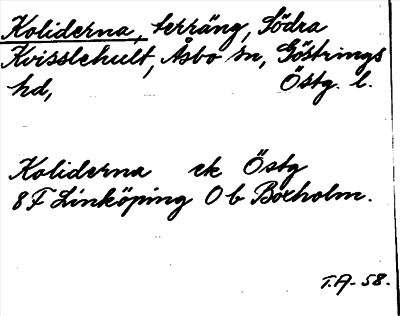 Koliderna, terräng, Södra
Kvisslehult, Åsbo sn, Göstrings
hd, Östg. l.
Koliderna ek Östg
8F Linköping 0 b Boxholm.
T.A. - 58.